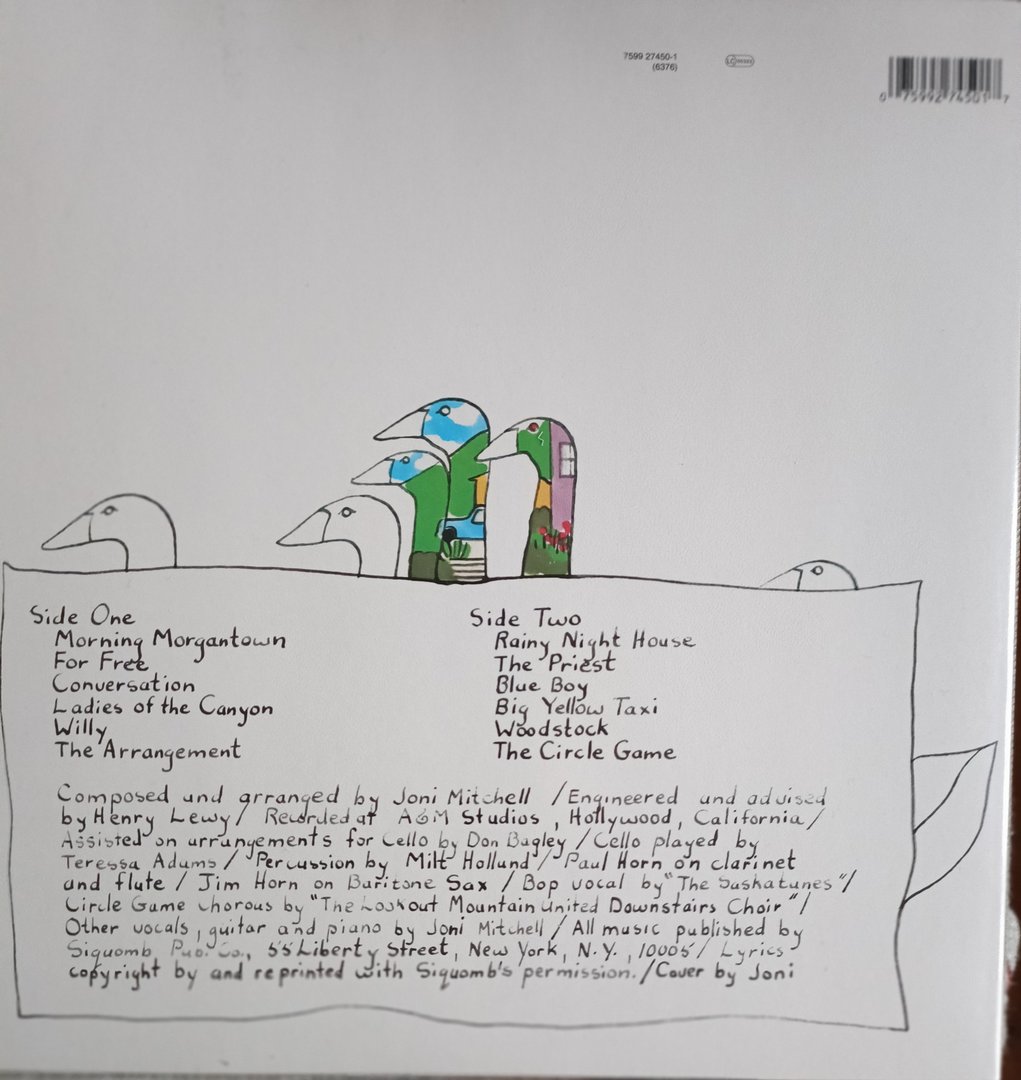 7599 27450-1
(6376)
LC
0 75992 74501 7
Side One
Morning Morgantown
For Free
Conversation
Ladies of the Canyon
Willy
The Arrangement
Side Two
Rainy Night House
The Priest
Blue Boy
Big Yellow Taxi
Woodstock
The Circle Game
Composed and arranged by Joni Mitchell / Engineered and advised
by Henry Lewy / Recorded at A&M Studios, Hollywood, California /
Assisted on arrangements for Cello by Don Bagley / Cello played by
Teressa Adams / Percussion by Milt Holland / Paul Horn on clarinet
and flute / Jim Horn on Baritone Sax / Bop vocal by "The Saskatunes" /
Circle Game chorous by "The Lookout Mountain United Downstairs Choir" /
Other vocals, guitar and piano by Joni Mitchell / All music published by
Siquomb Pub. Co., 55 Liberty Street, New York, N.Y., 10005 / Lyrics
copyright by and reprinted with Siquomb's permission. / Cover by Joni